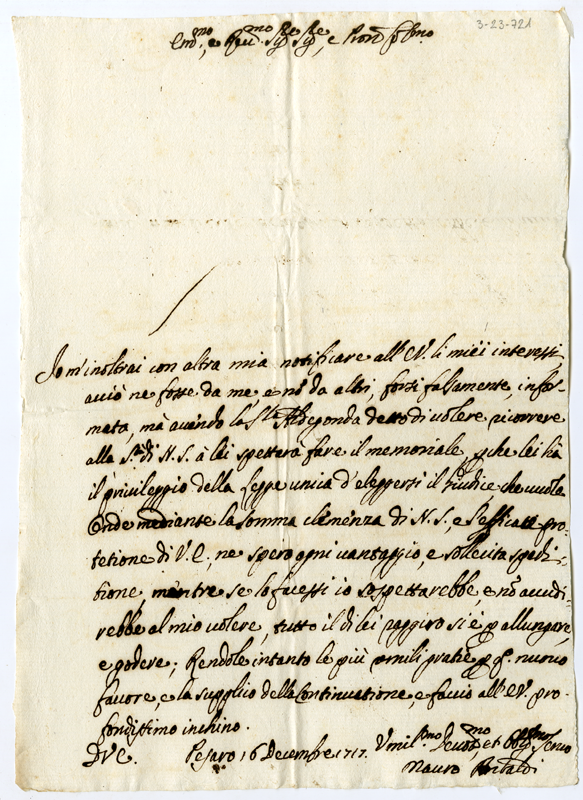 3-23-721
Em.mo, e Rev.mo Sig.re Sig.re, e Pron
Io m'inoltrai con altra mia notificare all'E.V. li miei interessi
acciò ne fosse da me, e nõ da altri, forsi falsamente, infor-
mata, mà avendo la S.ra Aldegonda detto di volere ricorrere
alla S.tà di N.S. à lei spetterà fare il memoriale, p che lei hà
il privileggio della legge unica d'eleggersi il Giudice che vuole
Onde mediante la somma clemenza di N.S., e l'efficace pro-
tetione di V.E., ne spero ogni vantaggio, e sollecita spedi-
tione, mentre se lo facessi io sospettarebbe e nõ accudi-
rebbe al mio volere, tutto il di lei raggiro si è p allungare,
e godere; Rendole intanto le più umili gratie p q. nuovo
favore, e la supplico della Continuatione, e faccio all'E.V. pro-
fondissimo inchino.
D V.E. Pesaro 16 Decembre 1717. Umil.mo Devot.mo, et Obblig.mo Servo
Mauro